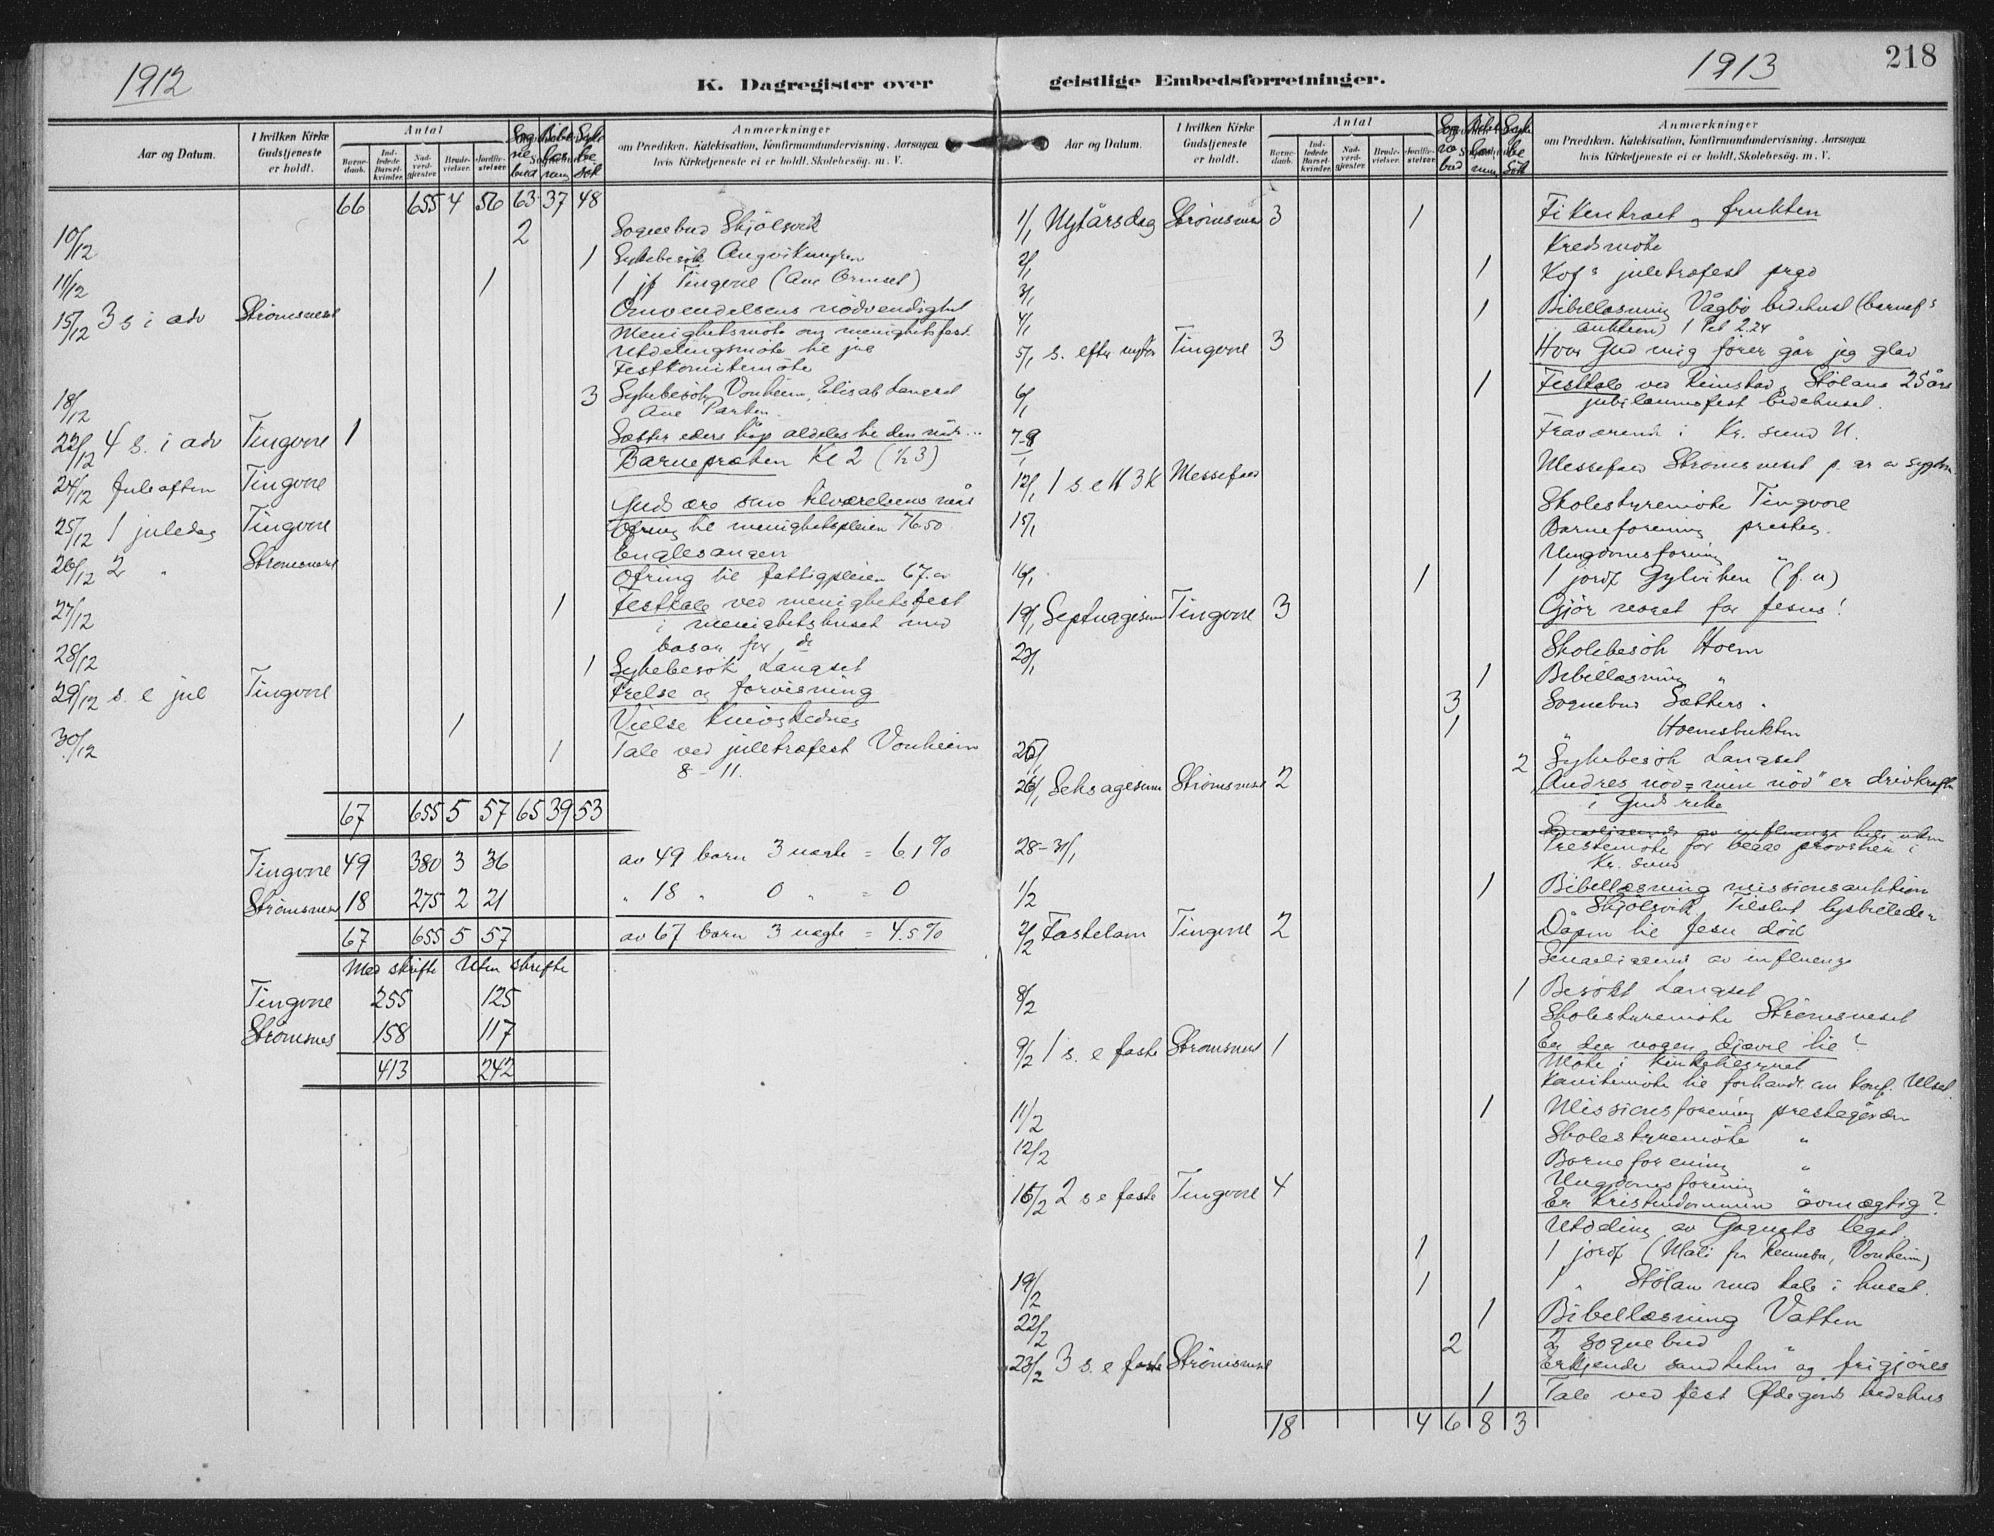 1912
K. Dagregister over
Aar og Datum.
I hvilken Kirke Gudstjeneste er holdt.
Antal
Barnedaab.
Indledede Barselkvinder.
Nadverdgjæster.
Brudevielser.
Jordfæstelser.
Sognebud
Bibellæsning
Sykebesök
Anmærkninger
om Prædiken, Katekisation, Konfirmandundervisning. Aarsagen
hvis Kirketjeneste ei er holdt. Skolebesög. m. V.
66 655 4 56 63 37 48
10/12 2 Sognebud Skjölsvik
1 Sykebesök Angvikmyren
11/12 1 1 jf Tingvoll (Ane Ormset)
15/12 3 s i adv Strömsnes Omvendelsens nödvendighet
Menighetsmöte om menighetsfest
Utdelingsmöte til jul
Festkomitemöte
18/12 3 Sykebesök Vonheim, Elisab Langset
Ane Parken
22/12 4 s. i adv Tingvoll 1 Sætter eders håp aldeles til den
Barnepræken Kl 2 (½ 3)
24/12 Juleaften Tingvoll
25/12 1 juledag Tingvoll Guds ære som tilværelsens mål
Ofring til menighetspleien 76.50
26/12 2 " Strömsnes Englesangen
Ofring til fattigpleien 67.
27/12 1 Festtale ved menighetsfest
i menighetshuset med
basar for do
28/12 1 Sykebesök Langset
29/12 s. e jul Tingvoll Frelse og forvisning
1 Vielse
30/12 1 Tale ved juletræfest Vonheim
8 - 11.
67 655 5 57 65 39 53
Tingvoll 49 380 3 36 av 49 barn 3 uegte = 6.1 %
Strömsnes 18 275 2 21 " 18 " 0 " = 0
67 655 5 57 av 67 barn 3 uegte = 4.5 %
Med skrifte Uten skrifte
Tingvoll 255 125
Strömsnes 158 117
413 242
1913
218
geistlige Embedsforretninger.
Aar og Datum.
I hvilken Kirke Gudstjeneste er holdt.
Antal
Barnedaab.
Indledede Barselkvinder.
Nadverdgjæster.
Brudevielser.
Jordfæstelser.
Sognebud
Bibellæsning
Sykebesök
Anmærkninger
om Prædiken, Katekisation, Konfirmandundervisning. Aarsagen
hvis Kirketjeneste ei er holdt. Skolebesög. m. V.
1/1 Nytårsdag Strömsnes 3 1 Fikentræet og frukten
2/1 Kredsmöte
3/1 1 juletræfest prgd
4/1 1 Bibellæsning Vågbö bedehus (barnef's
auktion) 1 Pet 2.24
5/1 s. efter nytår Tingvoll 3 Hvor Gud mig förer går jeg glad
6/1 1 Festtale ved Stölans 25 års
jubilæumsfest bedehuset.
7-8/1 Fraværende i Kr. sund N.
12/1 1 s e H 3 K Messefald Messefald Strömsneset p. gr. a sygdom
15/1 Skolestyremöte Tingvoll
Barneforening presteg.
Ungdomsforening "
16/1 1 1 jordf Gylviken (f. u)
19/1 Septuagesima Tingvoll 3 Gjör noget for Jesus!
23/1 Skolebesök Hoem
1 Bibellæsning "
3 Sognebud Sæters "
1 " Hoemsbukten
25/1 2 Sykebesök Langset
26/1 Seksagesima Strömsnes 2 "Andres nöd = min nöd" er drivkraften
i Guds rike
28-31/1 Prestemöte for begge provstier i
Kr. sund
1/2 1 Bibellæsning missionsauktion
Skjölsvik Tilslut lysbilleder
2/2 Fastelavn Tingvoll 2 Dåpen til Jesu död
Sengeliggende av influenza
8/2 1 Besökt Langset
Skolestyremöte Strömsneset
9/2 1 s. e faste Strömsnes 1 Er der nogen djævel til?
Möte i Kirketilsynet
Komitemöte til forhandl. om konf.
11/2 1 Missionsforening prestegården
12/2 Skolestyremöte "
Barneforening "
Ungdomsforening "
16/2 2 s e faste Tingvoll 4 Er Kristendommen avmægtig?
Utdeling av legat.
1 1 jordf (Mali fra Rennebu, Vonheim)
19/2 1 1 " Stölan med tale i huset.
22/2 1 Bibellæsning Vatten
2 2 sognebud
23/2 3 s. e faste Strömsnes Erkjende sandheten og frigjöres
1 Tale ved fest Ödegård bedehus
18 4 6 8 3